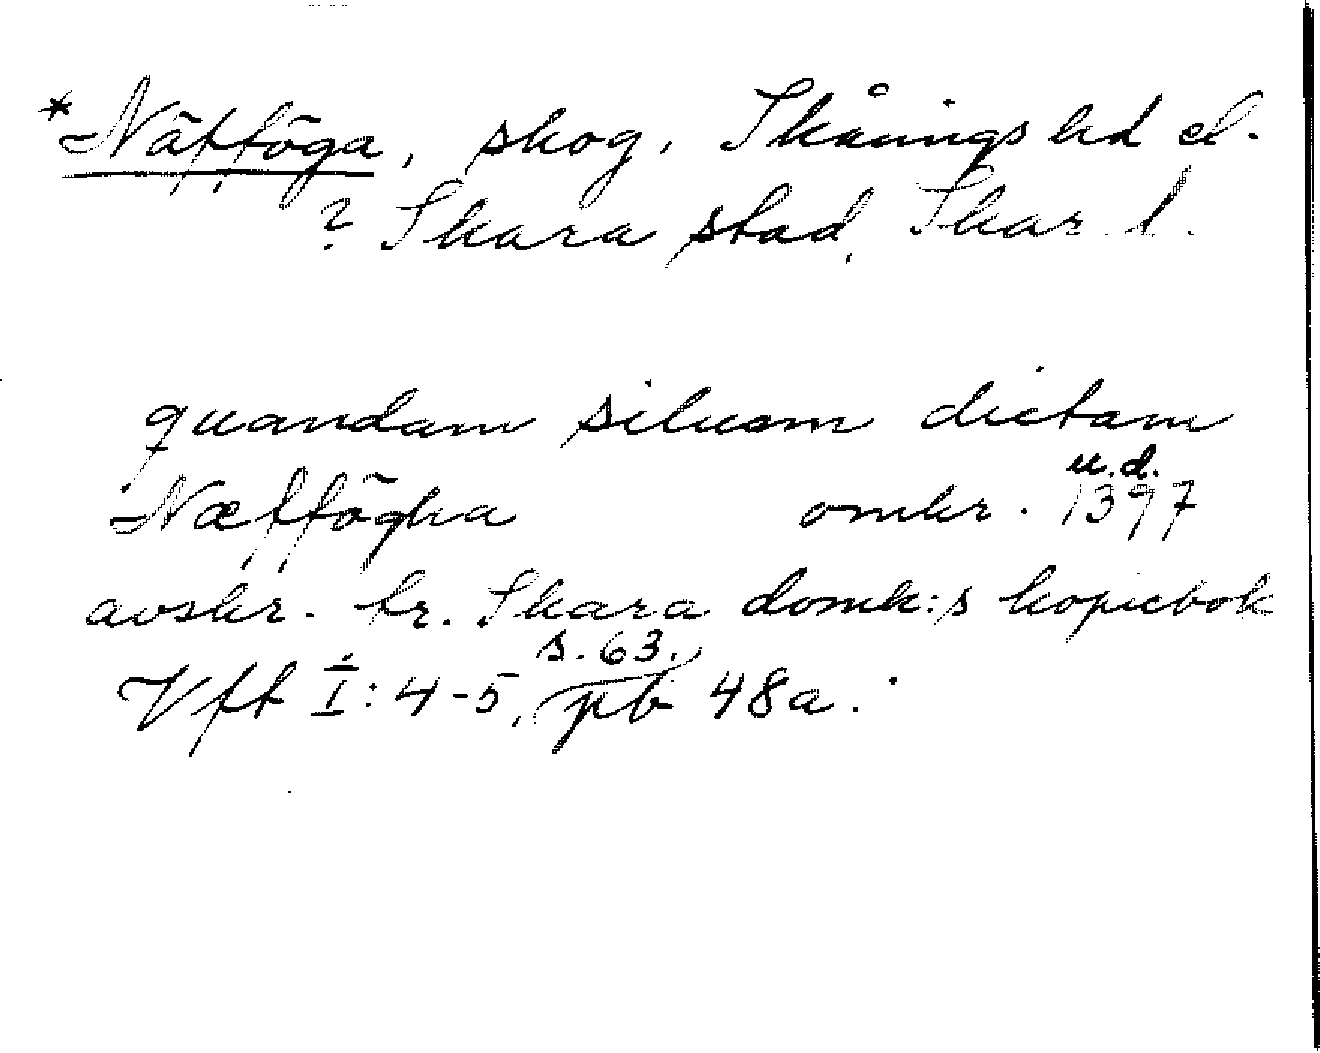 *Näfföga, skog, Skånings hd el.
? Skara stad, Skar. l.
quandam siluam dictam
u.d.
Næffögha omkr. 1397
avskr. fr. Skara domk:s kopiebok
s. 63.
Vft I: 4-5, pb 48a.